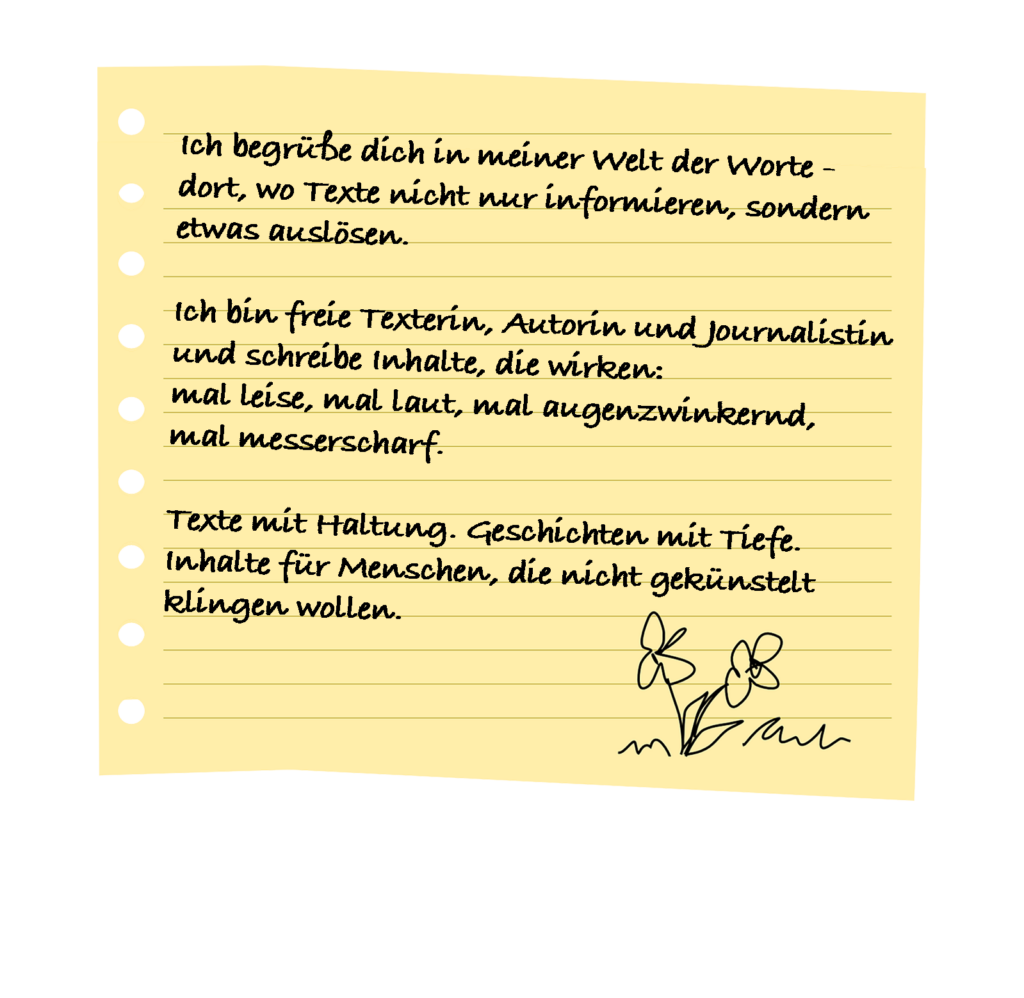 Ich begrüße dich in meiner Welt der Worte -
dort, wo Texte nicht nur informieren, sondern
etwas auslösen.
Ich bin freie Texterin, Autorin und Journalistin
und schreibe Inhalte, die wirken:
mal leise, mal laut, mal augenzwinkernd,
mal messerscharf.
Texte mit Haltung. Geschichten mit Tiefe.
Inhalte für Menschen, die nicht gekünstelt
klingen wollen.